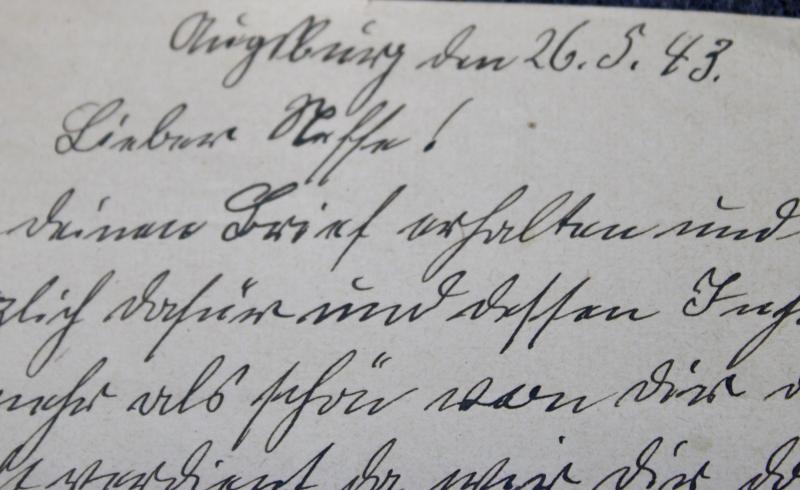 Augsburg den 26. 5. 43.
Lieber Neffe!
deinen Brief erhalten und
zlich dafür und dessen Inh
mehr als schön von dir d
verdient da wir dir da